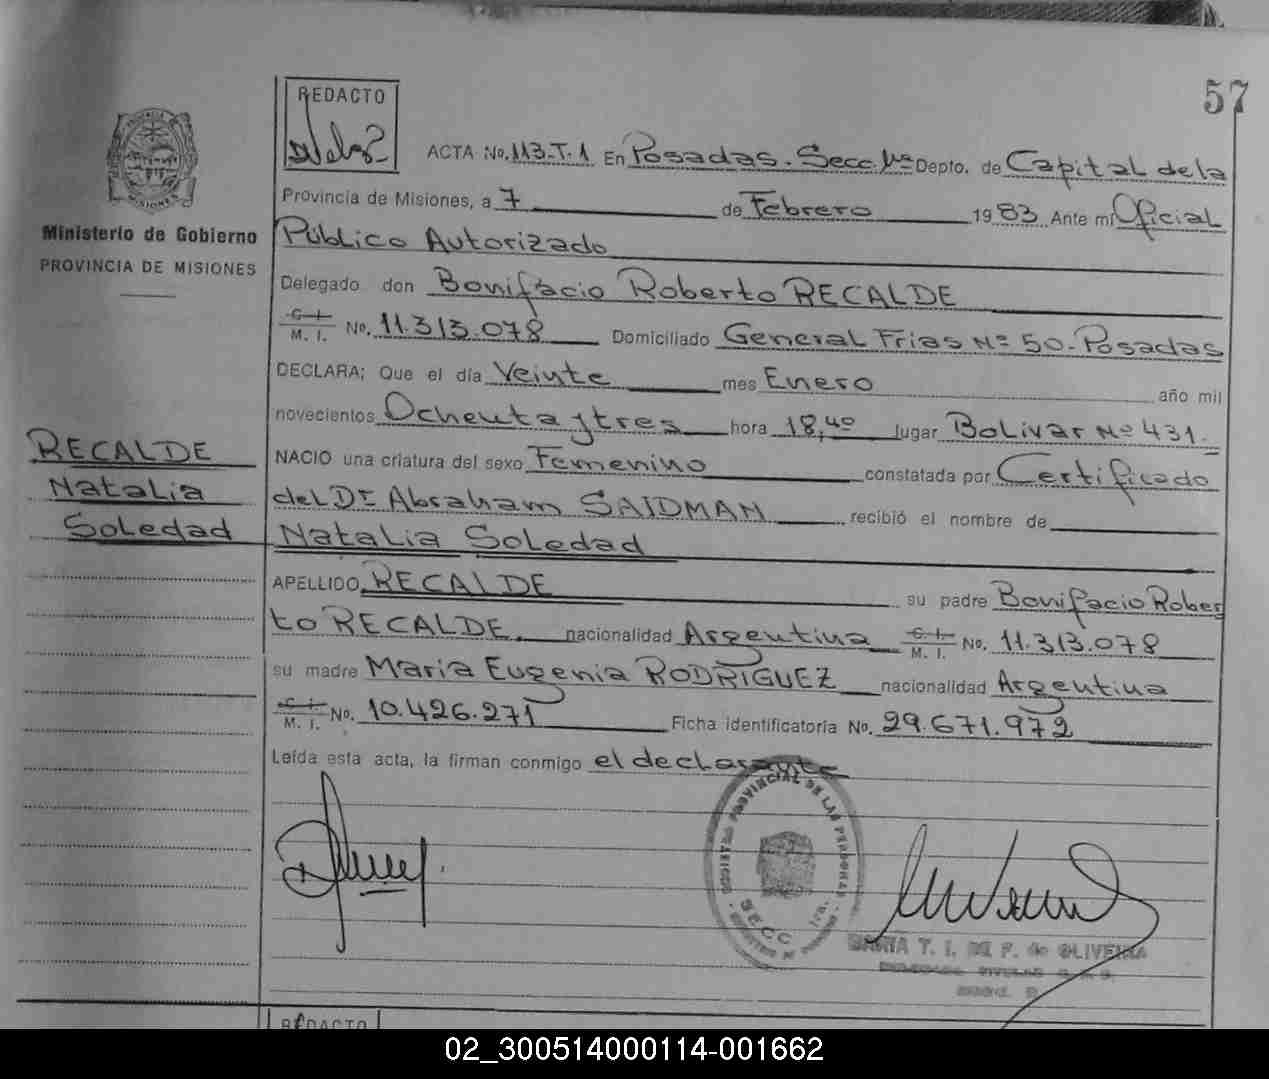 57
REDACTO
ACTA No. 113-T.1 En Posadas. Secc. 1ra Depto. de Capital de la
Provincia de Misiones, a 7 de Febrero 1983 Ante mi Oficial
Ministerio de Gobierno
PROVINCIA DE MISIONES
Público Autorizado
Delegado don Bonifacio Roberto RECALDE
C. I.
M. I. No. 11.313.078 Domiciliado General Frias Nº 50-Posadas
DECLARA; Que el día Veinte mes Enero año mil
novecientos Ochenta y tres hora 18,40 lugar Bolivar Nº 431.
RECALDE
Natalia
Soledad
NACIO una criatura del sexo Femenino constatada por Certificado
del Dr. Abraham SAIDMAN recibió el nombre de
Natalia Soledad
APELLIDO RECALDE su padre Bonifacio Rober
to RECALDE. nacionalidad Argentina C. I.
M. I. No. 11.313.078
su madre Maria Eugenia RODRIGUEZ nacionalidad Argentina
C. I.
M. I. No. 10.426.271 Ficha identificatoria No. 29.671.972
Leída esta acta, la firman conmigo el declarante
PROVINCIAL DE LAS PERSONAS
SECC. 1ra.
MARIA T. I. DE F. de OLIVEIRA
REDACTO
02_300514000114-001662